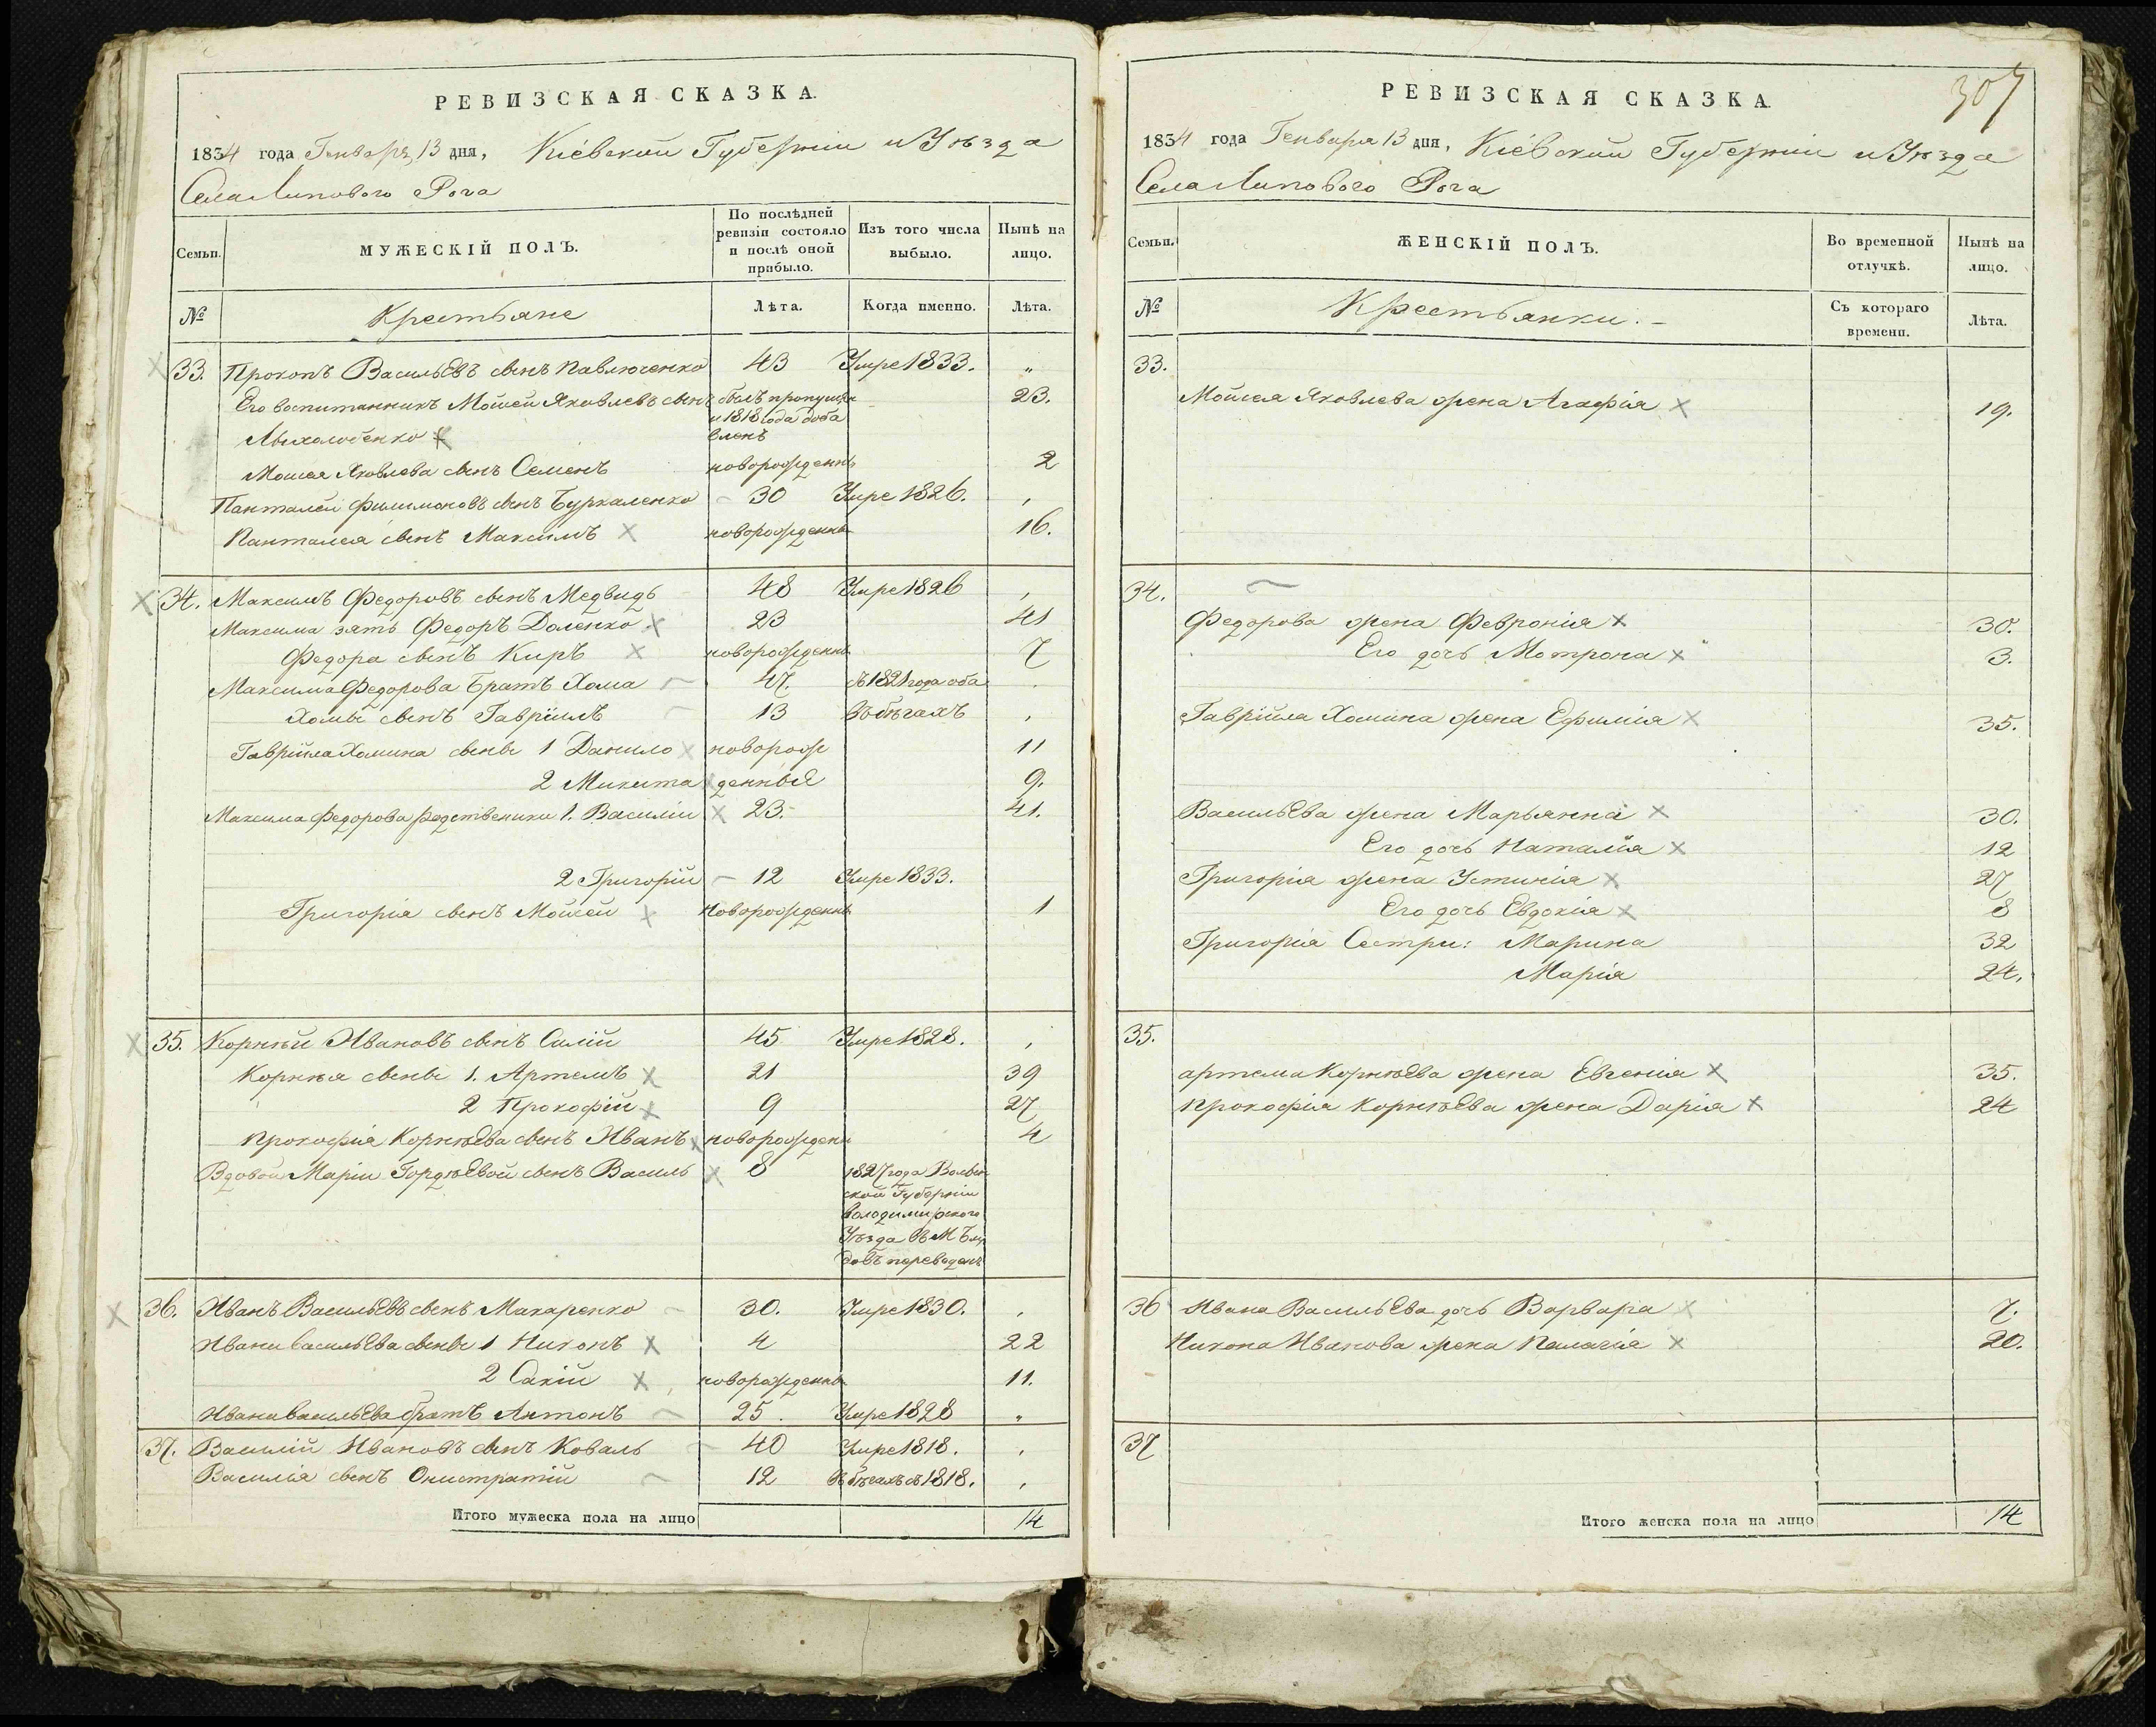 РЕВИЗСКАЯ СКАЗКА.
1834 года Генваря 13 дня, Кіевской Губерніи и Уѣзда
Села Липового Рога
Семьи.
МУЖЕСКІЙ ПОЛЪ.
По послѣдней ревизіи состояло и послѣ оной прибыло.
Изъ того числа выбыло.
Нынѣ на лицо.
№
Крестьяне
Лѣта.
Когда именно.
Лѣта.
33. Прокопъ Васильевъ сынъ Павлюченко 43 Умре 1833. „
Его воспитанникъ Мойсей Яковлевъ сынъ былъ пропущен 23.
и 1818 года доба
вленъ
Мойсея Яковлева сынъ Семенъ новорожденнъ 2
Панталей Филимоновъ сынъ Буркаленко 30 Умре 1826.
Панталея сынъ Максимъ новорожденнъ 16.
34. Максимъ Федоровъ сынъ Медвидь 48 Умре 1826
Максима зять Федоръ Доленко 23 41
Федора сынъ Киръ новорожденнъ 7
Максима Федорова братъ Хома 47. съ 1821 года оба
Хомы сынъ Гавріилъ 13 въ бѣгахъ
Гавріила Хомина сыны 1 Данило новорож 11
2 Микита денные 9.
Максима Федорова родственики 1. Василій 23. 41.
2 Григорій 12 Умре 1833.
Григорія сынъ Мойсей новорожденнъ 1
35. Корнѣй Ивановъ сынъ Силій 45 Умре 1828.
Корнѣя сыны 1. Артемъ 21 39
2 Прокофій 9 27
Прокофія Корнѣева сынъ Иванъ новорожден 4
Вдовой Маріи Гордѣевой сынъ Василь 8 1827 года Волын
ской Губерніи
Володимирского
Уѣзда въ М
переведенъ
36. Иванъ Васильевъ сынъ Макаренко 30. Умре 1830.
Ивана Васильева сыны 1 Никонъ 4 22
2 Сакій новорожденнъ 11.
Ивана Васильева братъ Антонъ 25. Умре 1828 „
37. Василій Ивановъ сынъ Коваль 40 Умре 1818.
Василія сынъ Онистратій 12 Въ бѣгахъ съ 1818.
Итого мужеска пола на лицо 14
307
РЕВИЗСКАЯ СКАЗКА.
1834 года Генваря 13 дня, Кіевской Губерніи и Уѣзда
Села Липового Рога
Семьи.
ЖЕНСКІЙ ПОЛЪ.
Во временной отлучкѣ.
Нынѣ на лицо.
№
Крестьянки.
Съ котораго времени.
Лѣта.
33.
Мойсея Яковлева жена Агафія 19.
34.
Федорова жена Февронія 30.
Его дочь Мотрона 3.
Гавріила Хомина жена Ефимія 35.
Васильева жена Марьянна 30.
Его дочь Наталія 12
Григорія жена Устинія 27
Его дочь Евдокія 8
Григорія Сестри: Марина 32
Марія 24.
35.
Артема Корнѣева жена Евгенія 35.
Прокофія Корнѣева жена Дарія 24
36 Ивана Васильева дочь Варвара 7.
Никона Иванова жена Пелагія 20.
37
Итого женска пола на лицо 14